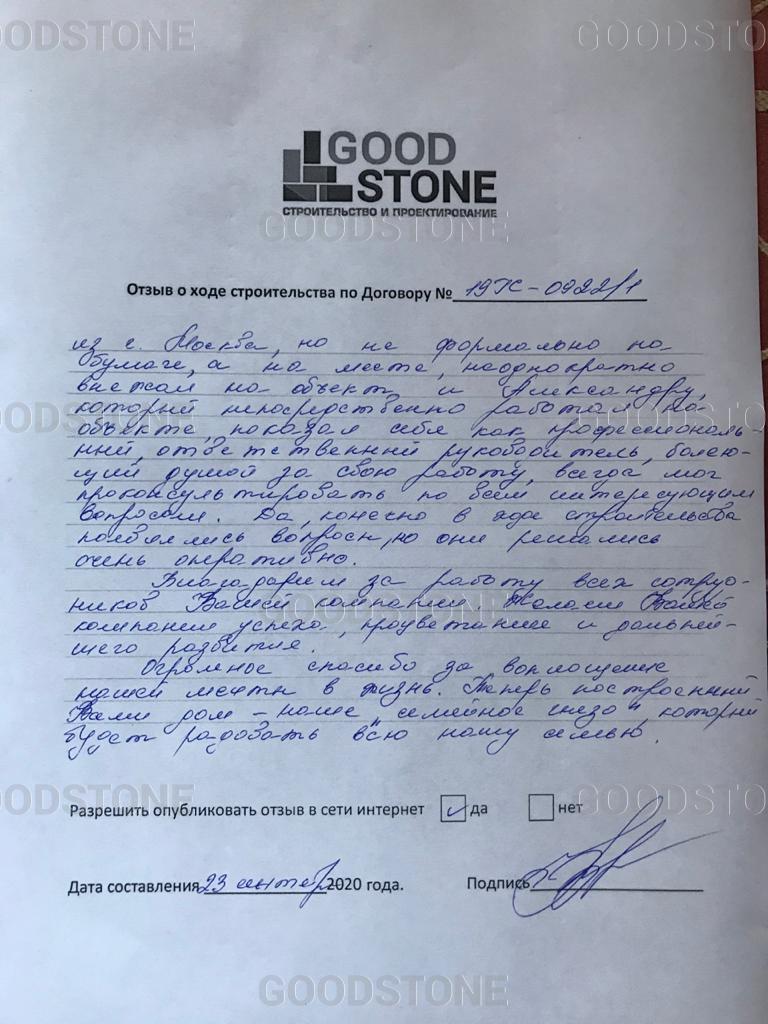 GOODSTONE
GOODSTO
GOOD
STONE
СТРОИТЕЛЬСТВО И ПРОЕКТИРОВАНИЕ
GOODSTONE
Отзыв о ходе строительства по Договору № 19К-0922/1
из г. Москва, но не формально на
бумаге, а на месте, неоднократно
выезжал на объект и Александру,
который непосредственно работал на
объекте, показал себя как профессиональ-
ный, ответственный руководитель, болею-
щий душой за свою работу, всегда мог
проконсультировать по всем интересующим
вопросам. Да, конечно в ходе строительства
появлялись вопросы, но они решались
очень оперативно.
Благодарим за работу всех сотруд-
ников Вашей компании. Желаем Вашей
компании успеха, процветание и дальней-
шего развития.
Огромное спасибо за воплощение
нашей мечты в жизнь. Теперь построенный
Вами дом - наше "семейное гнездо", который
будет радовать всю нашу семью.
GOODSTONE
GOODSTO
GOODSTONE
Разрешить опубликовать отзыв в сети интернет да нет
GOODSTONE
GOODSTO
Дата составления 23 сентябр 2020 года. Подпись
GOODSTONE